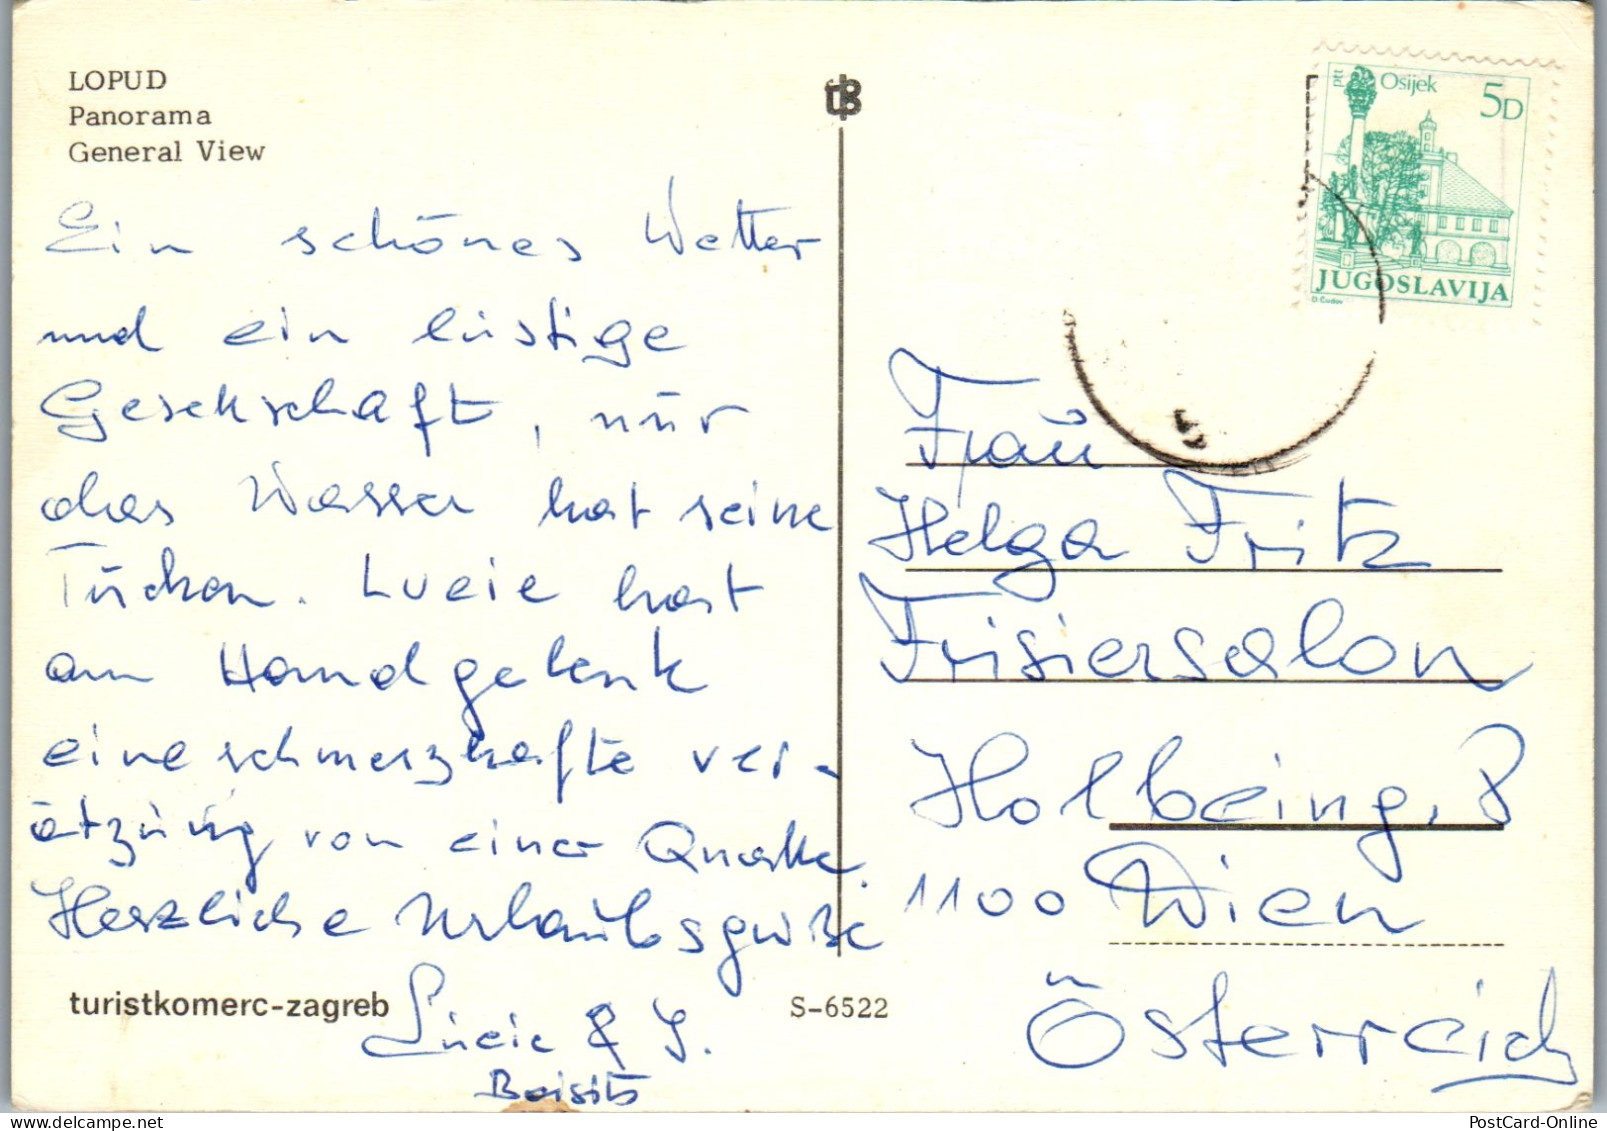 LOPUD
Panorama
General View
Ein schönes Wetter
und ein lustige
Gesellschaft, nur
das Wasser hat seine
Tücken. Lucie hat
am Handgelenk
eine schmerzhafte ver-
ätzung von einer Qualle.
Herzliche Urlaubsgrüße
Lucie & J.
turistkomerc-zagreb
S-6522
ptt Osijek 5D
JUGOSLAVIJA
Frau
Helga Fritz
Frisiersalon
Holbeing. 8
1100 Wien
Österreich
PostCard-Online